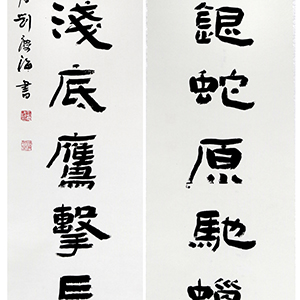 銀蛇原馳蠟
淺底鷹擊長
海書